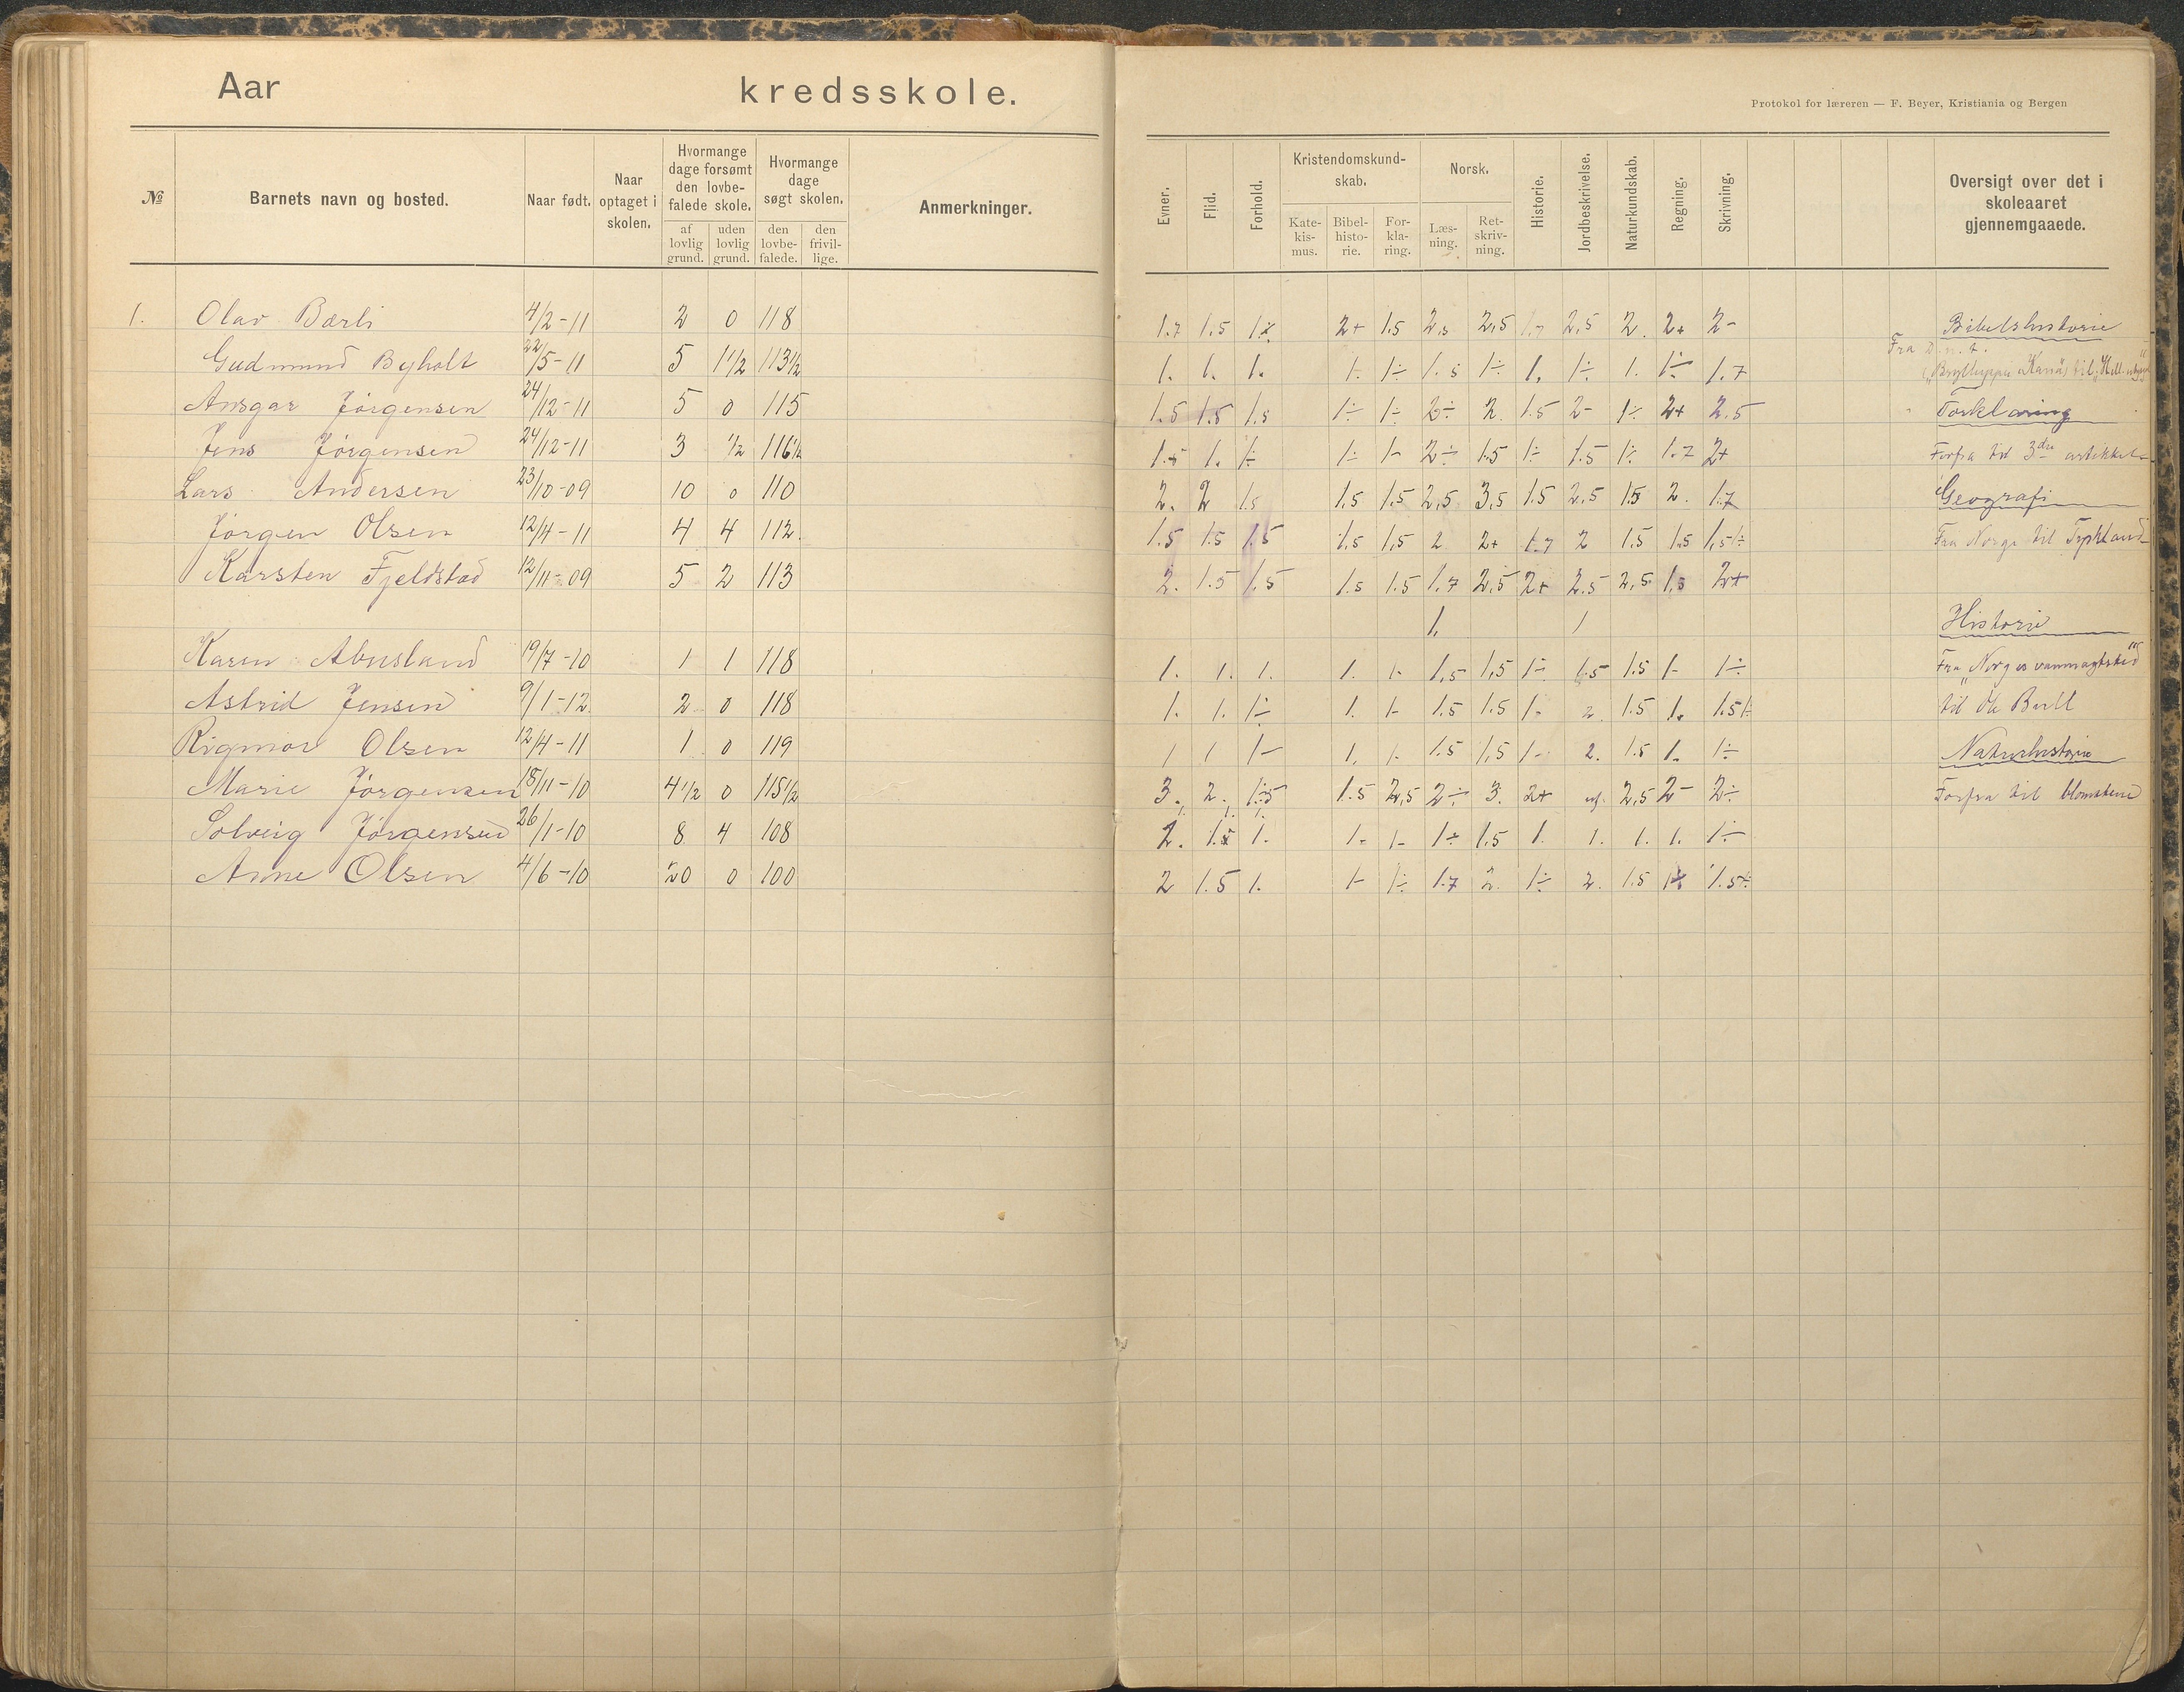 Aar kredsskole.
Protokol for læreren — F. Beyer, Kristiania og Bergen
№ Barnets navn og bosted. Naar født. Naar optaget i skolen. Hvormange dage forsømt den lovbefalede skole. af lovlig grund. uden lovlig grund. Hvormange dage søgt skolen. den lovbefalede. den frivillige. Anmerkninger. Evner. Flid. Forhold. Kristendomskundskab. Katekismus. Bibelhistorie. Forklaring. Norsk. Læsning. Retskrivning. Historie. Jordbeskrivelse. Naturkundskab. Regning. Skrivning. Oversigt over det i skoleaaret gjennemgaaede.
1. Olav Bærli 4/2-11 2 0 118 1.7 1.5 2+ 1.5 2,5 2,5 1.7 2,5 2. 2+ 2- Bibelshistorie
Gudmund Byholt 22/5-11 5 1 1/2 113 1/2 1. 1. 1. 1. 1÷ 1.5 1÷ 1. 1÷ 1. 1÷ 1.7 Fra D. n. t. („Brylluppet i Kana" til
Ansgar Jörgensen 24/12-11 5 0 115 1.5 1.5 1.5 1÷ 1÷ 2÷ 2. 1.5 2- 1÷ 2+ 2.5 Forklaring
Jens Jörgensen 24/12-11 3 1/2 116 1/2 1.5 1. 1÷ 1÷ 1- 2÷ 1.5 1÷ 1.5 1÷ 1.7 2+ Forfra til 3die artikkel
Lars Andersen 23/10-09 10 0 110 2. 2 1.5 1.5 1.5 2,5 3,5 1.5 2,5 1.5 2. 1.7 Geografi
Jörgen Olsen 12/4-11 4 4 112. 1.5 1.5 1.5 1.5 1,5 2 2+ 1.7 2 1.5 1.5 1,5÷ Fra Norge til Tyskland
Karsten Fjeldstad 12/11-09 5 2 113 2. 1.5 1.5 1.5 1.5 1.7 2,5 2+ 2.5 2,5 1,5 2+
1. 1 Historie
Karen Abusland 19/7-10 1 1 118 1. 1. 1. 1. 1- 1,5 1,5 1÷ 1.5 1.5 1- 1÷ Fra „Norges vanmagtstid"
Astrid Jensen 9/1-12. 2 0 118 1. 1. 1÷ 1. 1- 1.5 1.5 1- 2. 1.5 1. 1.5÷ til Ole Bull
Rigmor Olsen 12/4-11 1 0 119 1 1 1- 1. 1- 1.5 1,5 1- 2. 1.5 1. 1÷ Naturhistorie
Marie Jörgensen 18/11-10 4 1/2 0 115 1/2 3. 2. 1.5 1.5 2,5 2÷ 3. 2+ 2,5 2- 2÷ Forfra til blomstene
Solveig Jörgensen 26/1-10 8 4 108 2. 1.5 1. 1- 1- 1÷ 1.5 1. 1. 1. 1. 1÷
Anne Olsen 4/6-10 20 0 100 2 1.5 1. 1- 1÷ 1.7 2. 1÷ 2. 1.5 1.5÷